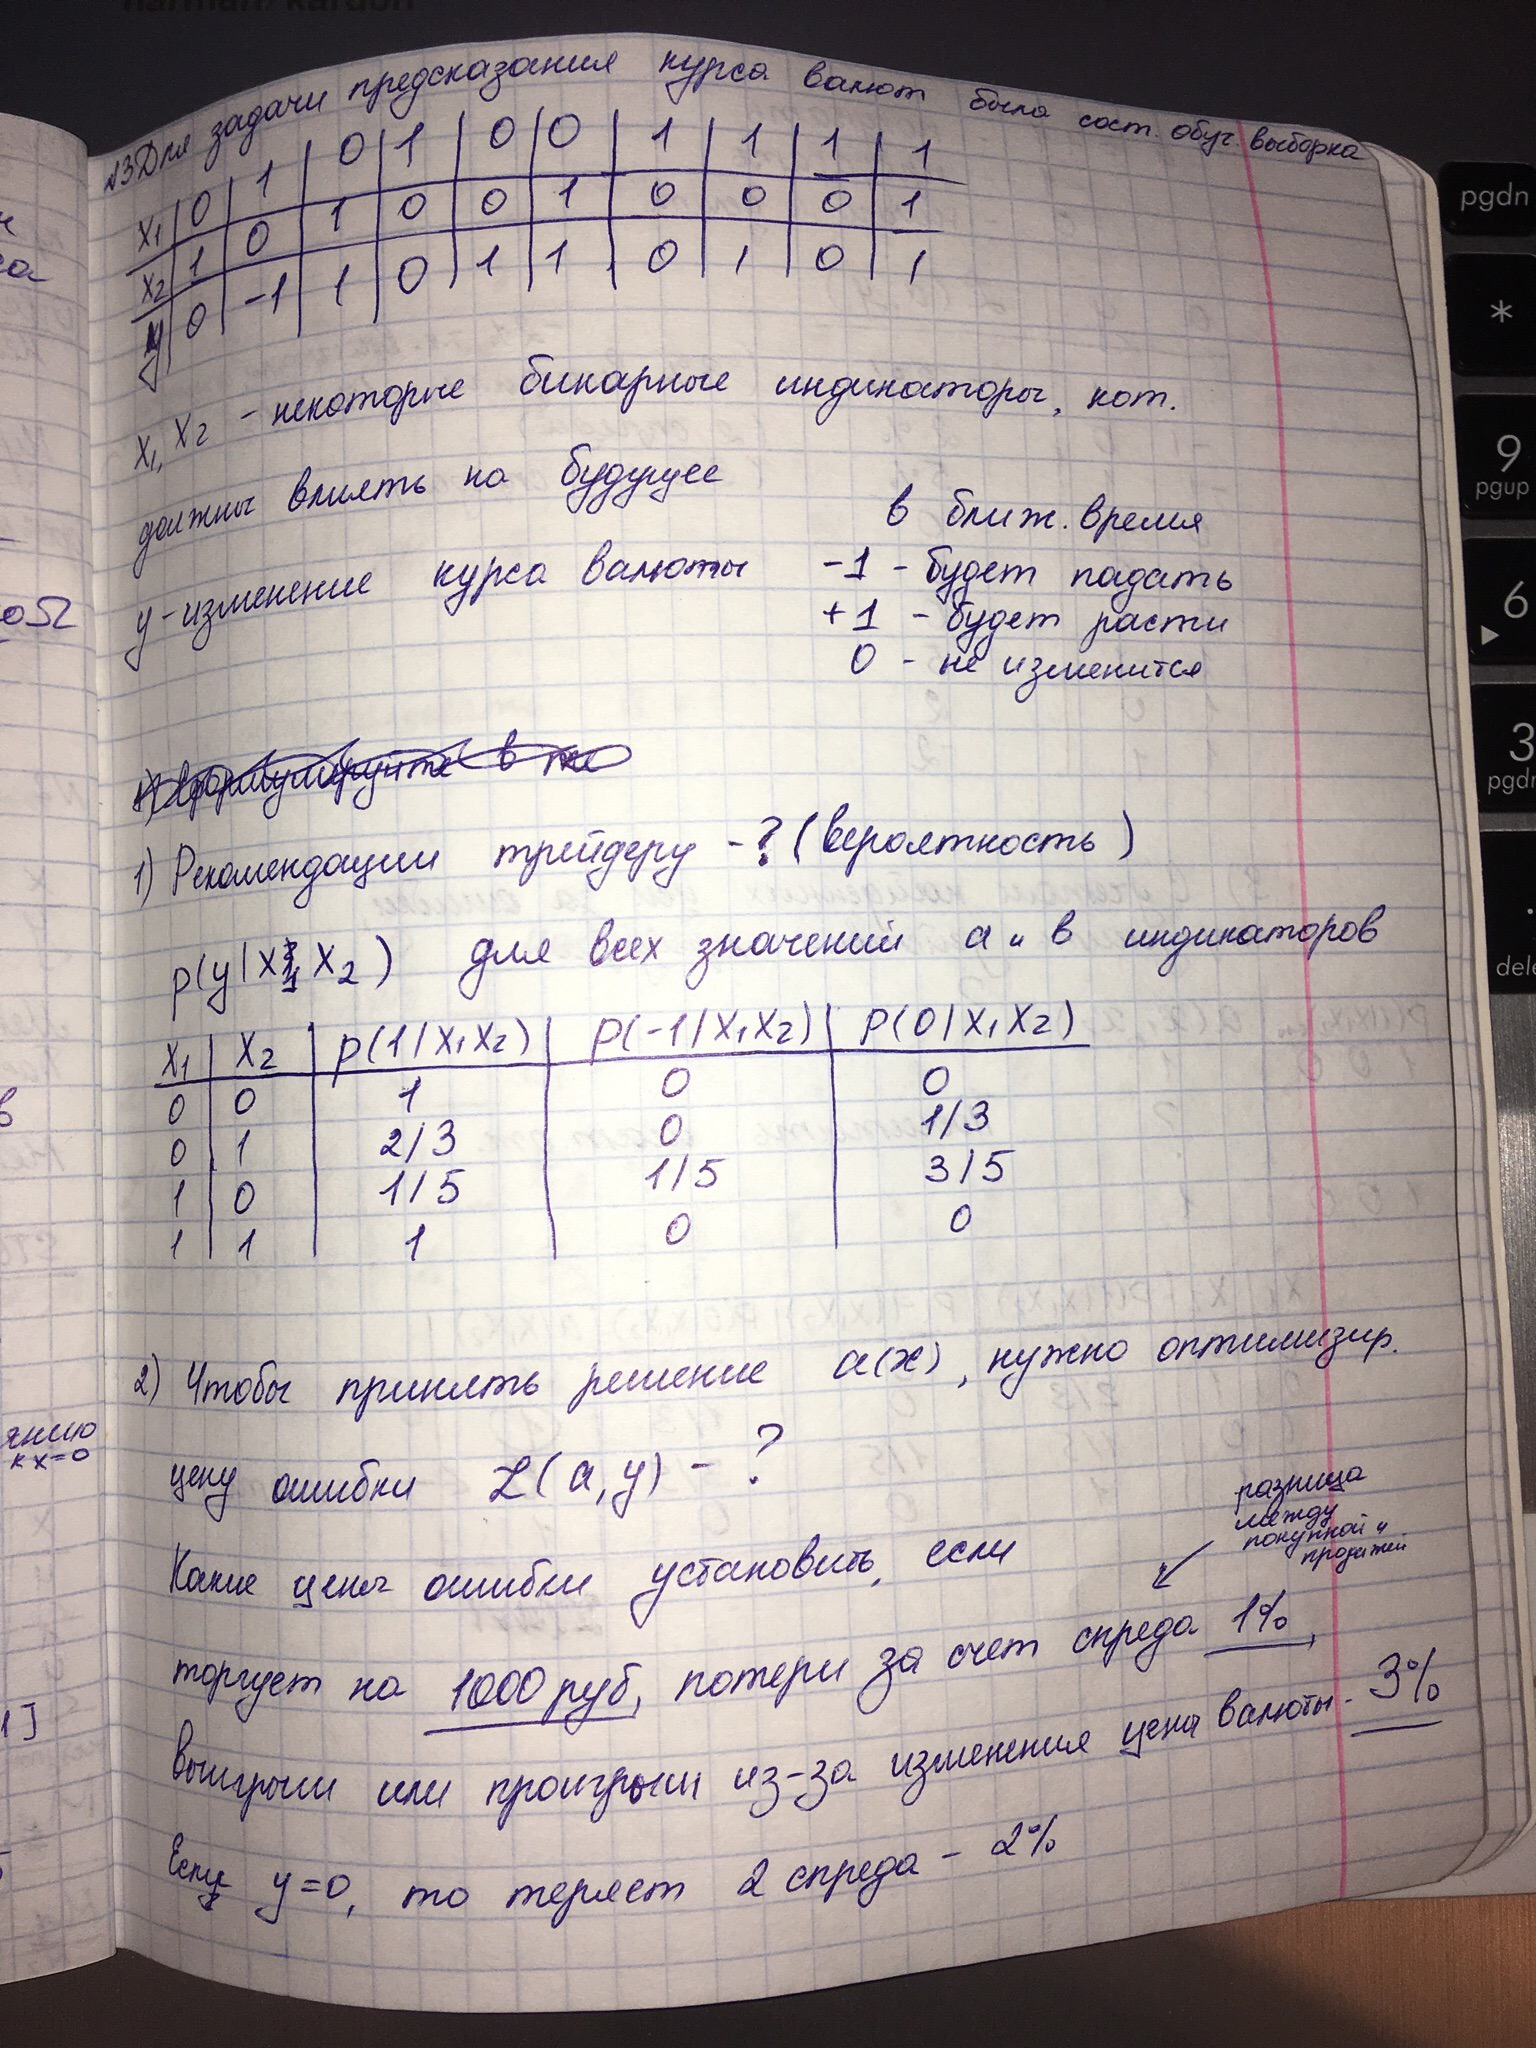 harman/kardon
№3 Для задачи предсказания курса валют была сост. обуч. выборка
x₁ | 0 | 1 | 0 | 1 | 0 | 0 | 1 | 1 | 1 | 1
x₂ | 1 | 0 | 1 | 0 | 0 | 1 | 0 | 0 | 0 | 1
y | 0 | -1 | 1 | 0 | 1 | 1 | 0 | 1 | 0 | 1
x₁, x₂ - некоторые бинарные индикаторы, кот.
должны влиять на будущее
y - изменение курса валюты
в ближ. время
-1 - будет падать
+1 - будет расти
0 - не изменится
1) Рекомендации трейдеру - ? (вероятность)
p(y|x₁, x₂) для всех значений a и b индикаторов
x₁ | x₂ | p(1/x₁x₂) | p(-1/x₁x₂) | p(0/x₁x₂)
0 | 0 | 1 | 0 | 0
0 | 1 | 2/3 | 0 | 1/3
1 | 0 | 1/5 | 1/5 | 3/5
1 | 1 | 1 | 0 | 0
2) Чтобы принять решение a(x), нужно оптимизир.
цену ошибки L(a,y) - ?
Какие цены ошибки установить, если
разница
между
покупкой и
продажей
торгует на 1000 руб, потери за счет спреда 1%,
выигрыш или проигрыш из-за изменения цены валюты - 3%
Если y=0, то теряет 2 спреда - 2%
0 52
янию
к x=0
1]
pgdn
*
9
pgup
6
3
pgdn
.
dele